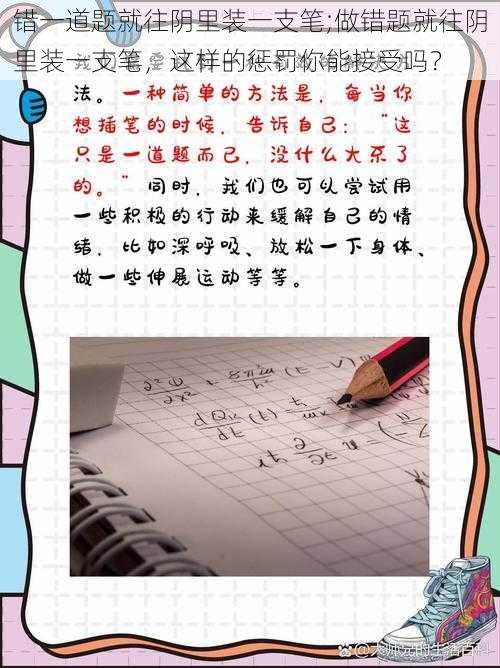 错一道题就往阴里装一支笔;做错题就往阴
里装一支笔，这样的惩罚你能接受吗？
法。一种简单的方法是，每当你
想插笔的时候，告诉自己：“这
只是一道题而已，没什么大不了
的。”同时，我们也可以尝试用
一些积极的行动来缓解自己的情
绪，比如深呼吸、放松一下身体、
做一些伸展运动等等。
@大师兄的生活百科